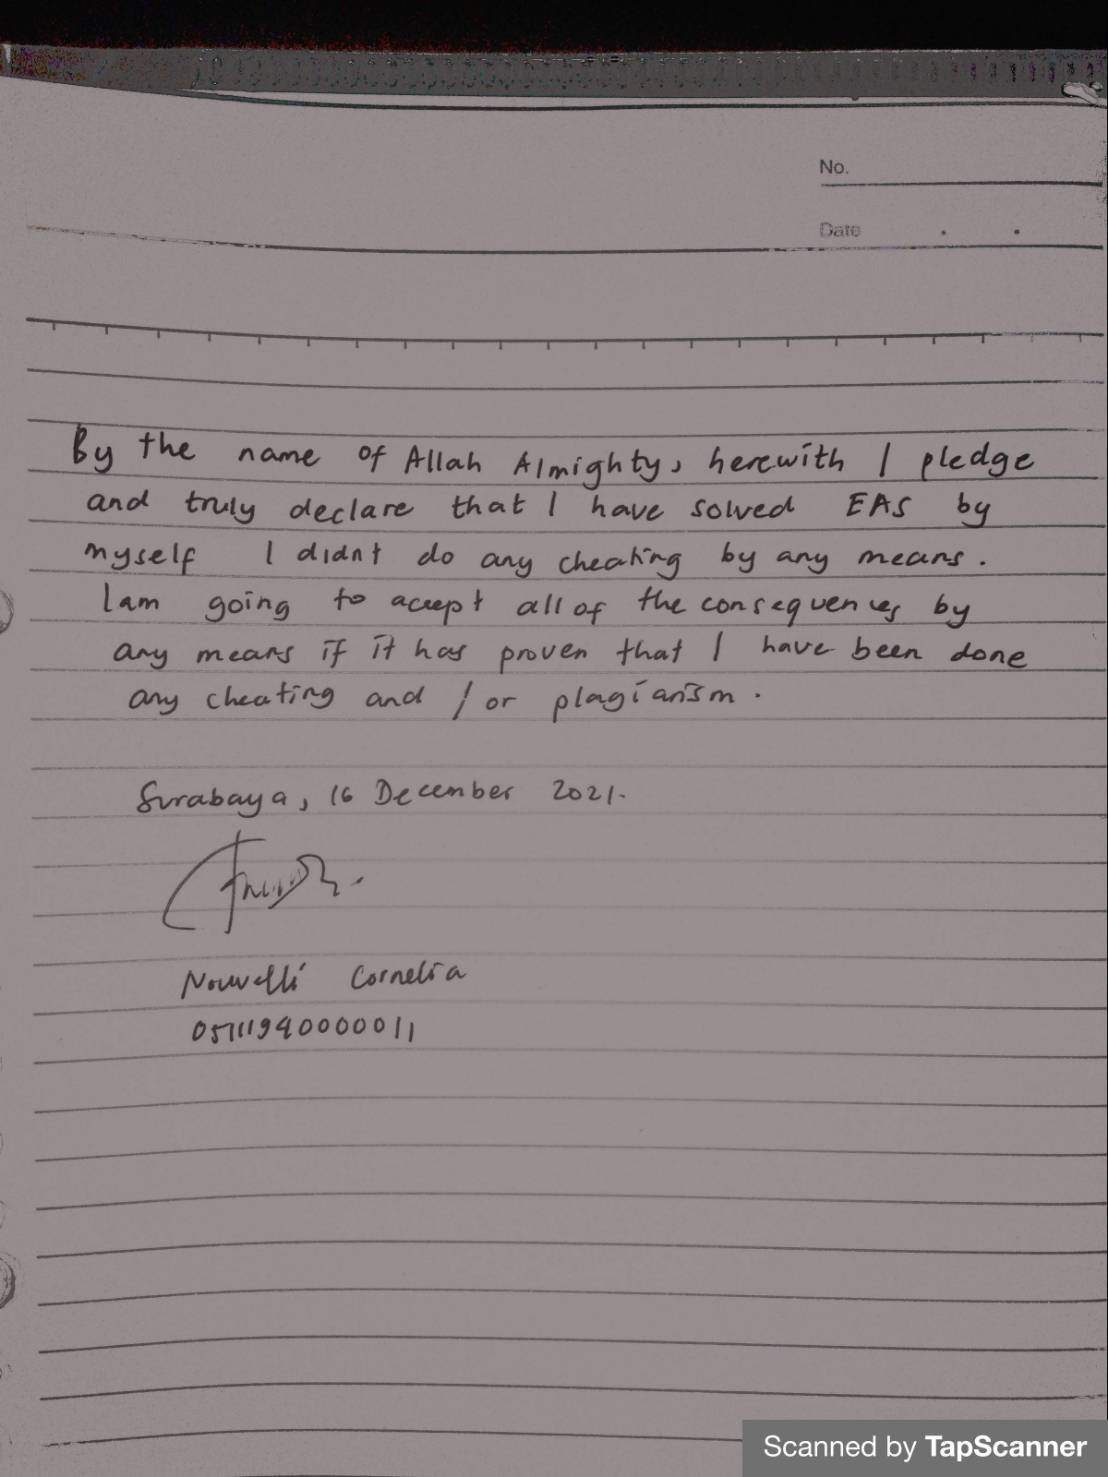 No.
Date . .
By the name of Allah Almighty, herewith I pledge
and truly declare that I have solved EAS by
myself I didnt do any cheating by any means.
I am going to accept all of the consequences by
any means if it has proven that I have been done
any cheating and / or plagiarism.
Surabaya, 16 December 2021.
Nouvelli Cornelia
05111940000011
Scanned by TapScanner